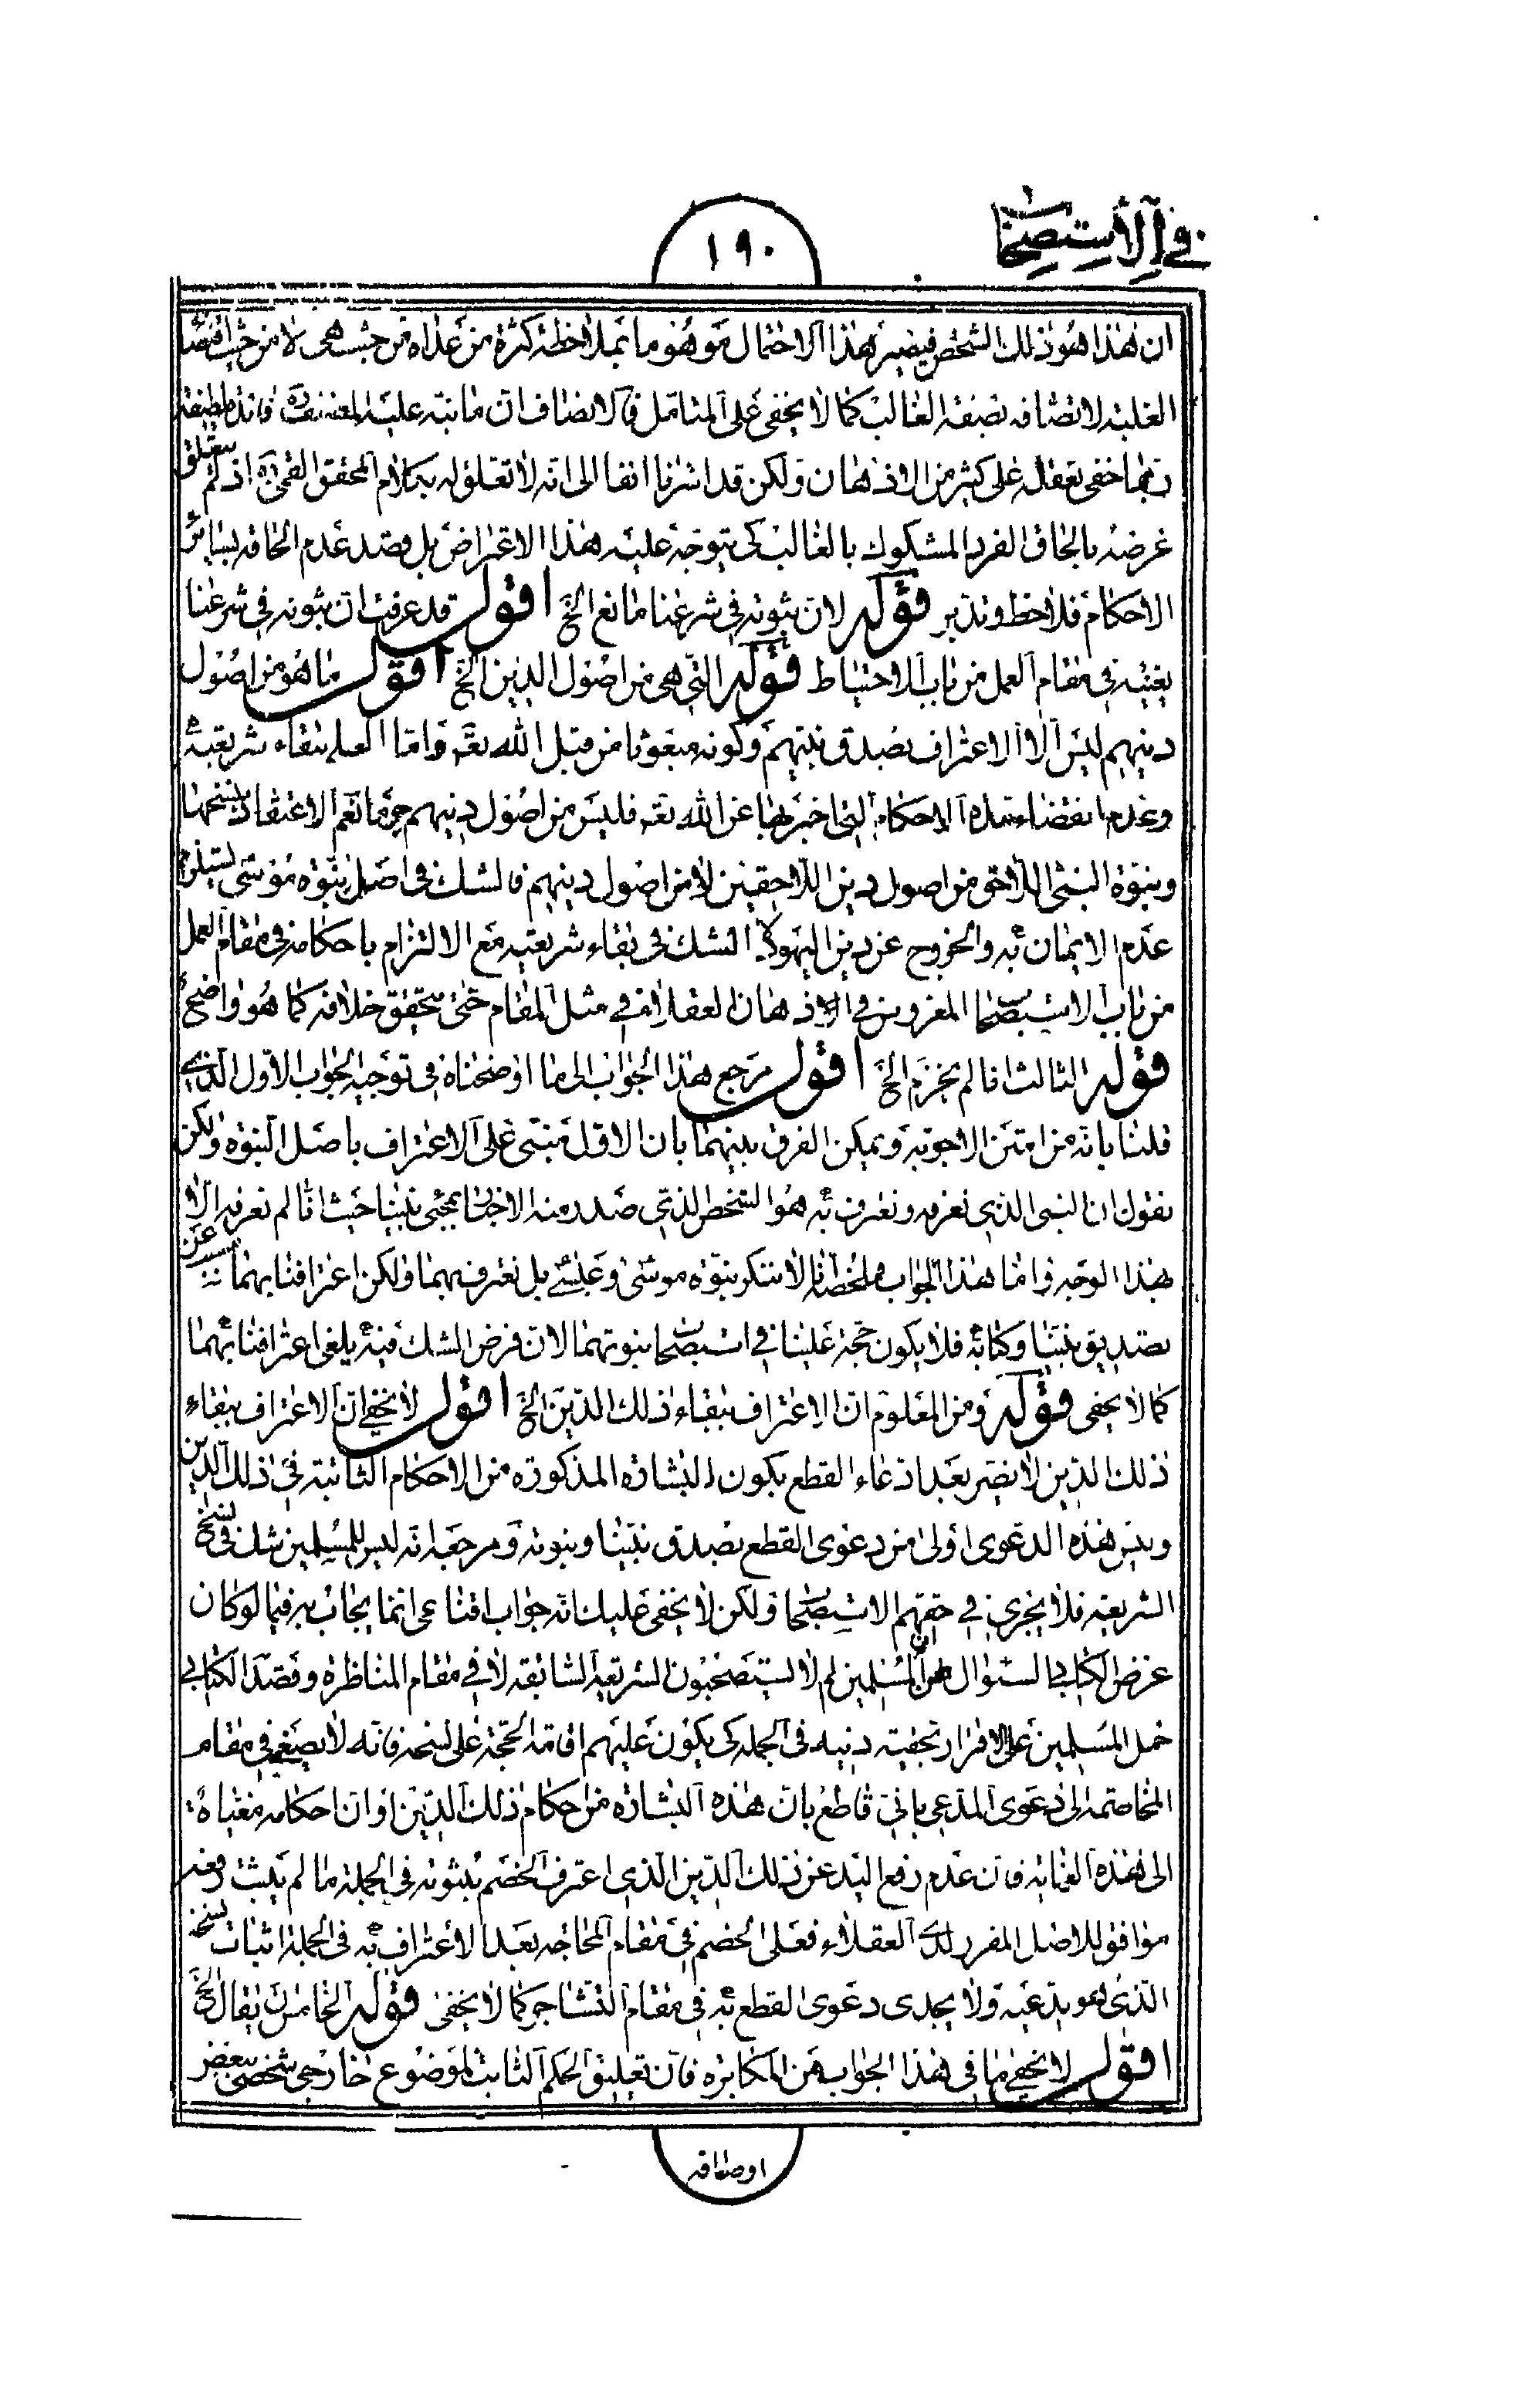 في الاستصحاب
١٩٠
ان هذا هو ذلك الشخص فيصير هذا الاحتمال موهوما بملاحظة كثرة من عداه من حيث هي لا من حيث اقتضاء
الغلبة لاتصافه بصفة الغالب كما لا يخفى على المتامل فالانصاف ان ما نبه عليه المصنف ره فائدة لطيفة
ربما خفى تعقله على كثير من الاذهان ولكن قد اشرنا انفا الى انه لا تعلق له بكلام المحقق القمي ره اذ لم يتعلق
غرضه بالحاق الفرد المشكوك بالغالب كى يتوجه عليه هذا الاعتراض بل قصد عدم الحاقه بسائر
الاحكام فلاحظ وتدبر قوله لان ثبوته في شرعنا مانع الخ اقول قد عرفت ان ثبوته في شرعنا
يغنيه في مقام العمل من باب الاحتياط قوله التي هي من اصول الدين الخ اقول ما هو من اصول
دينهم ليس الا الاعتراف بصدق نبيهم وكونه مبعوثا من قبل الله تعه واما العلم ببقاء شريعته
وعدم انقضاء مدة الاحكام التي اخبر بها عن الله تعه فليس من اصول دينهم ح نعم الاعتقاد بنسخها
وبنبوة النبى اللاحق من اصول دين اللاحقين لا من اصول دينهم فالشك في اصل نبوة موسى يستلزم
عدم الايمان به والخروج عن دين اليهود لا الشك في بقاء شريعته مع الالتزام باحكامه في مقام العمل
من باب الاستصحاب المغروس في اذهان العقلاء في مثل المقام حتى يتحقق خلافه كما هو واضح
قوله الثالث انا لم نجزم الخ اقول مرجع هذا الجواب الى ما اوضحناه في توجيه الجواب الاول الذي
قلنا بانه من امتن الاجوبة ويمكن الفرق بينهما بان الاول مبنى على الاعتراف باصل النبوة ولكن
نقول ان النبي الذي نعرفه ونعترف به هو الشخص الذي صدر منه الاخبار بمجئ نبينا حيث انا لم نعرفه الا
بهذا الوجه واما هذا الجواب فملخصه انا لا ننكر نبوة موسى وعيسى بل نعترف بهما ولكن اعترافنا بهما مسبب عن
تصديق نبينا وكتابه فلا يكون حجة علينا في استصحاب نبوتهما لان فرض الشك فيه يلغى اعترافنا بهما
كما لا يخفى قوله ومن المعلوم ان الاعتراف ببقاء ذلك الدين الخ اقول لا يخفى ان الاعتراف ببقاء
ذلك الدين لا يضر بعد ادعاء القطع بكون البشارة المذكورة من الاحكام الثابتة في ذلك الدين
وليس هذه الدعوى اولى من دعوى القطع بصدق نبينا ونبوته ومرجعه انه ليس للمسلمين شك في نسخ
الشريعة فلا يجري في حقهم الاستصحاب ولكن لا يخفى عليك انه جواب اقناعى انما يجاب به فيما لو كان
غرض الكتابي السؤال عن ان المسلمين لم لا يستصحبون الشريعة السابقة لا في مقام المناظرة وقصد الكتابي
حمل المسلمين على الاقرار بحقية دينه في الجملة كى يكون عليهم اقامة الحجة على نسخه فانه لا يصغى في مقام
المخاصمة الى دعوى المدعي باني قاطع بان هذه البشارة من احكام ذلك الدين او ان احكامه مغياة
الى هذه الغاية فان عدم رفع اليد عن ذلك الدين الذي اعترف الخصم بثبوته في الجملة ما لم يثبت رفعه
موافق للاصل المقرر لدى العقلاء فعلى الخصم في مقام المحاجه بعد الاعتراف به في الجملة اثبات نسخه
الذي هو يدعيه ولا يجدى دعوى القطع به في مقام التشاجر كما لا يخفى قوله الخامس ان يقال الخ
اقول لا يخفى ما في هذا الجواب من المكابرة فان تعليق الحكم الثابت لموضوع خارجي شخصى ببعض
اوصافه